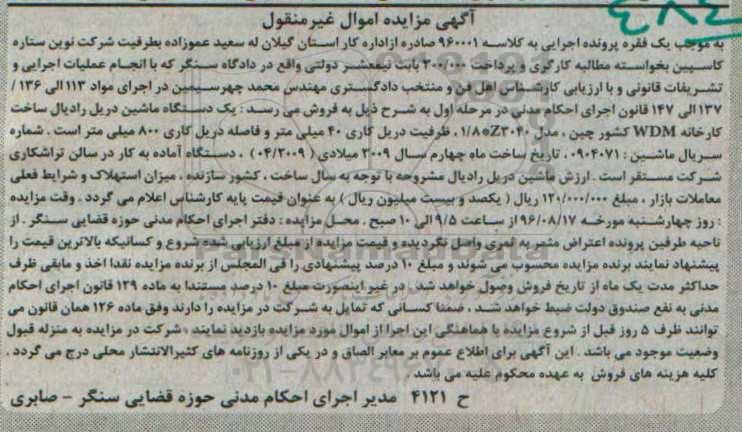 ۴۸۴
آگهی مزایده اموال غیرمنقول
به موجب یک فقره پرونده اجرایی به کلاسه ۹۶۰۰۰۱ صادره ازاداره کار استان گیلان له سعید عموزاده بطرفیت شرکت نوین ستاره
کاسپین بخواسته مطالبه کارگری و پرداخت ۲۰۰/۰۰۰ بابت نیمعشر دولتی واقع در دادگاه سنگر که با انجام عملیات اجرایی و
تشریفات قانونی و با ارزیابی کارشناس اهل فن و منتخب دادگستری مهندس محمد چهرسیمین در اجرای مواد ۱۱۳ الی ۱۳۶ /
۱۳۷ الی ۱۴۷ قانون اجرای احکام مدنی در مرحله اول به شرح ذیل به فروش می رسد : یک دستگاه ماشین دریل رادیال ساخت
کارخانه WDM کشور چین ، مدل Z۳۰۴۰*۱/۸ ، ظرفیت دریل کاری ۴۰ میلی متر و فاصله دریل کاری ۸۰۰ میلی متر است . شماره
سریال ماشین : ۰۹۰۴۰۷۱ ، تاریخ ساخت ماه چهارم سال ۲۰۰۹ میلادی ( ۰۴/۲۰۰۹ ) ، دستگاه آماده به کار در سالن تراشکاری
شرکت مستقر است . ارزش ماشین دریل رادیال مشروحه با توجه به سال ساخت ، کشور سازنده ، میزان استهلاک و شرایط فعلی
معاملات بازار ، مبلغ ۱۲۰/۰۰۰/۰۰۰ ریال ( یکصد و بیست میلیون ریال ) به عنوان قیمت پایه کارشناس اعلام می گردد . وقت مزایده
: روز چهارشنبه مورخه ۹۶/۰۸/۱۷ از ساعت ۹/۵ الی ۱۰ صبح . محل مزایده : دفتر اجرای احکام مدنی حوزه قضایی سنگر . از
ناحیه طرفین پرونده اعتراض مثمر به ثمری واصل نگردیده و قیمت مزایده از مبلغ ارزیابی شده شروع و کسانیکه بالاترین قیمت را
پیشنهاد نمایند برنده مزایده محسوب می شوند و مبلغ ۱۰ درصد پیشنهادی را فی المجلس از برنده مزایده نقدا اخذ و مابقی ظرف
حداکثر مدت یک ماه از تاریخ فروش وصول خواهد شد . در غیر اینصورت مبلغ ۱۰ درصد مستندا به ماده ۱۲۹ قانون اجرای احکام
مدنی به نفع صندوق دولت ضبط خواهد شد . ضمنا کسانی که تمایل به شرکت در مزایده را دارند وفق ماده ۱۲۶ همان قانون می
توانند ظرف ۵ روز قبل از شروع مزایده با هماهنگی این اجرا از اموال مورد مزایده بازدید نمایند . شرکت در مزایده به منزله قبول
وضعیت موجود می باشد . این آگهی برای اطلاع عموم بر معابر الصاق و در یکی از روزنامه های کثیرالانتشار محلی درج می گردد .
کلیه هزینه های فروش به عهده محکوم علیه می باشد .
ح ۴۱۲۱ مدیر اجرای احکام مدنی حوزه قضایی سنگر – صابری